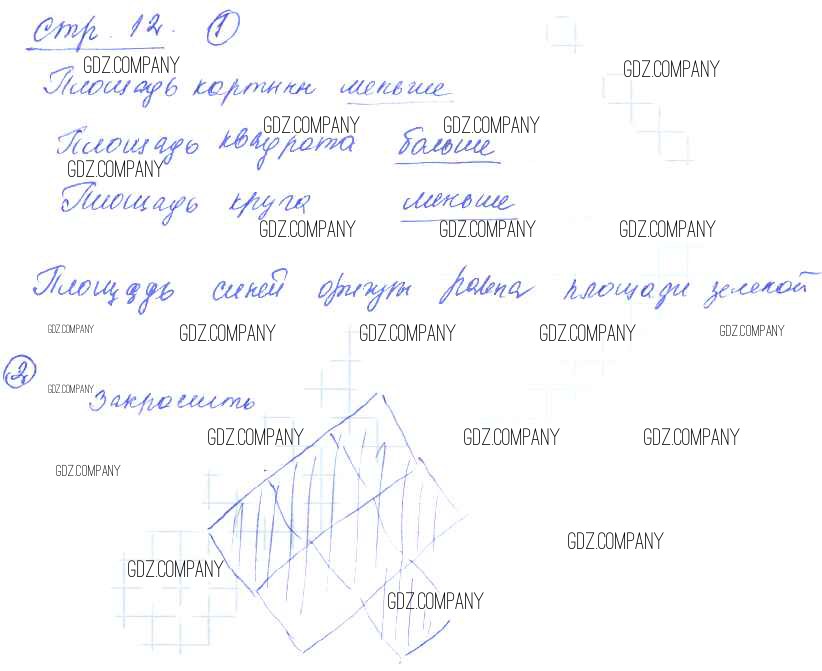 стр. 12. 1
GDZ.COMPANY GDZ.COMPANY
Площадь картины меньше
GDZ.COMPANY GDZ.COMPANY
Площадь квадрата больше
GDZ.COMPANY
Площадь круга меньше
GDZ.COMPANY GDZ.COMPANY GDZ.COMPANY
Площадь синей фигуры равна площади зеленой
GDZ.COMPANY GDZ.COMPANY GDZ.COMPANY GDZ.COMPANY GDZ.COMPANY
2
GDZ.COMPANY
Закрасить
GDZ.COMPANY GDZ.COMPANY GDZ.COMPANY
GDZ.COMPANY
GDZ.COMPANY
GDZ.COMPANY
GDZ.COMPANY